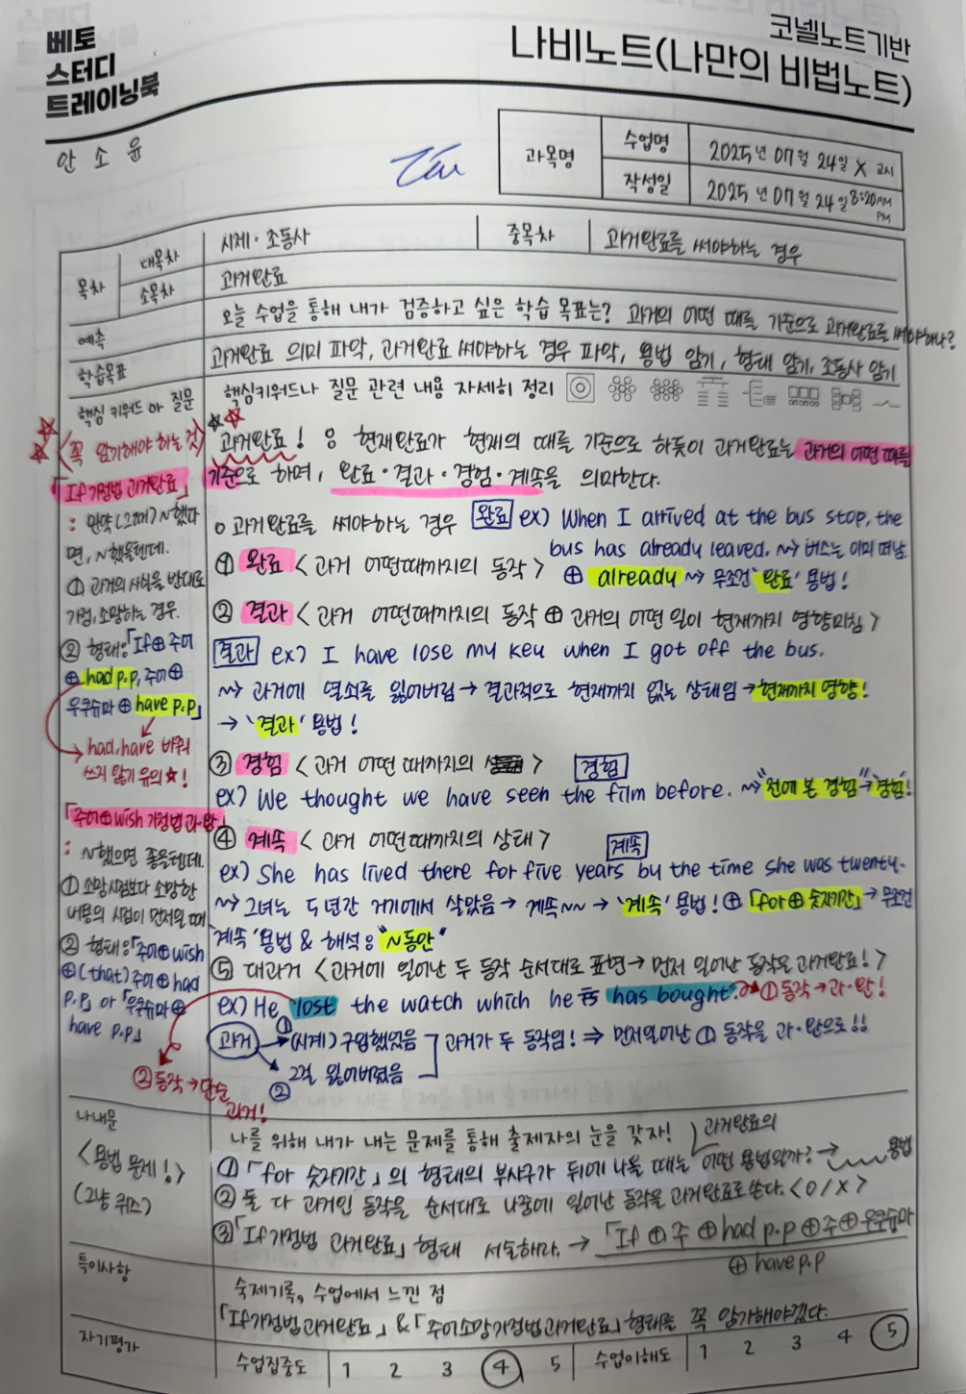 베토
스터디
트레이닝북
코넬노트기반
나비노트(나만의 비법노트)
안소윤
과목명
수업명
2025년 07월 24일 X 교시
작성일
2025년 07월 24일 8:20 AM PM
목차
대목차
시제·조동사
중목차
과거완료를 써야하는 경우
소목차
과거완료
예측
오늘 수업을 통해 내가 검증하고 싶은 학습 목표는? 과거의 어떤 때를 기준으로 과거완료를 써야하나?
학습목표
과거완료 의미 파악, 과거완료 써야하는 경우 파악, 용법 암기, 형태 암기, 조동사 암기
핵심 키워드 or 질문
핵심키워드나 질문 관련 내용 자세히 정리
<꼭 암기해야 하는 것>
「If가정법 과거완료」
: 만약(그때) ~했다
면, ~했을텐데.
① 과거의 사실을 반대로
가정, 소망하는 경우.
② 형태:「If⊕주어
⊕ had p.p, 주어⊕
우쿠슈마 ⊕ have p.p」
had, have 바꿔
쓰지 않기 유의★!
「주어⊕wish 가정법 과·완」
: ~했으면 좋을텐데.
① 소망시점보다 소망한
내용의 시점이 먼저일 때
② 형태:「주어⊕wish
⊕(that)주어⊕had
p.p」or「우쿠슈마⊕
have p.p」
과거완료! : 현재완료가 현재의 때를 기준으로 하듯이 과거완료는 과거의 어떤 때를
기준으로 하며, 완료·결과·경험·계속을 의미한다.
o 과거완료를 써야하는 경우 완료 ex) When I arrived at the bus stop, the
bus has already leaved. ~> 버스는 이미 떠남
① 완료 < 과거 어떤때까지의 동작 > ⊕ already ~> 무조건 '완료' 용법!
② 결과 < 과거 어떤때까지의 동작 ⊕ 과거의 어떤 일이 현재까지 영향미침 >
결과 ex) I have lose my keu when I got off the bus.
~> 과거에 열쇠를 잃어버림 → 결과적으로 현재까지 없는 상태임 → 현재까지 영향!
→ '결과' 용법!
③ 경험 < 과거 어떤때까지의 > 경험
ex) We thought we have seen the film before. ~> "전에 본 경험" → '경험'!
④ 계속 < 과거 어떤때까지의 상태 > 계속
ex) She has lived there for five years by the time she was twenty.
~> 그녀는 5년간 거기에서 살았음 → 계속~~ → '계속' 용법! ⊕ 「for⊕숫자기간」 → 무조건
'계속' 용법 & 해석: "~동안"
⑤ 대과거 <과거에 일어난 두 동작 순서대로 표현 → 먼저 일어난 동작을 과거완료! >
ex) He lost the watch which he has bought. ① 동작 → 과·완!
과거 ① (시계) 구입했었음 과거가 두 동작임! ⇒ 먼저일어난 ① 동작을 과·완으로!!
② 그걸 잃어버렸음
② 동작 → 단순
과거!
나내문
<용법 문제!>
(그냥 퀴즈)
나를 위해 내가 내는 문제를 통해 출제자의 눈을 갖자!
①「for 숫자기간」의 형태의 부사구가 뒤에 나올 때는 과거완료의 어떤 용법일까? → 용법
② 둘 다 과거인 동작을 순서대로 나중에 일어난 동작을 과거완료로 쓴다. <O/X>
③「If가정법 과거완료」 형태 서술하라. → 「If ⊕ 주 ⊕ had p.p ⊕ 주 ⊕ 우쿠슈마
⊕ have p.p
특이사항
숙제기록, 수업에서 느낀 점
「If가정법과거완료」&「주어소망가정법과거완료」형태를 꼭 암기해야겠다.
자기평가
수업집중도 1 2 3 4 5 수업이해도 1 2 3 4 5